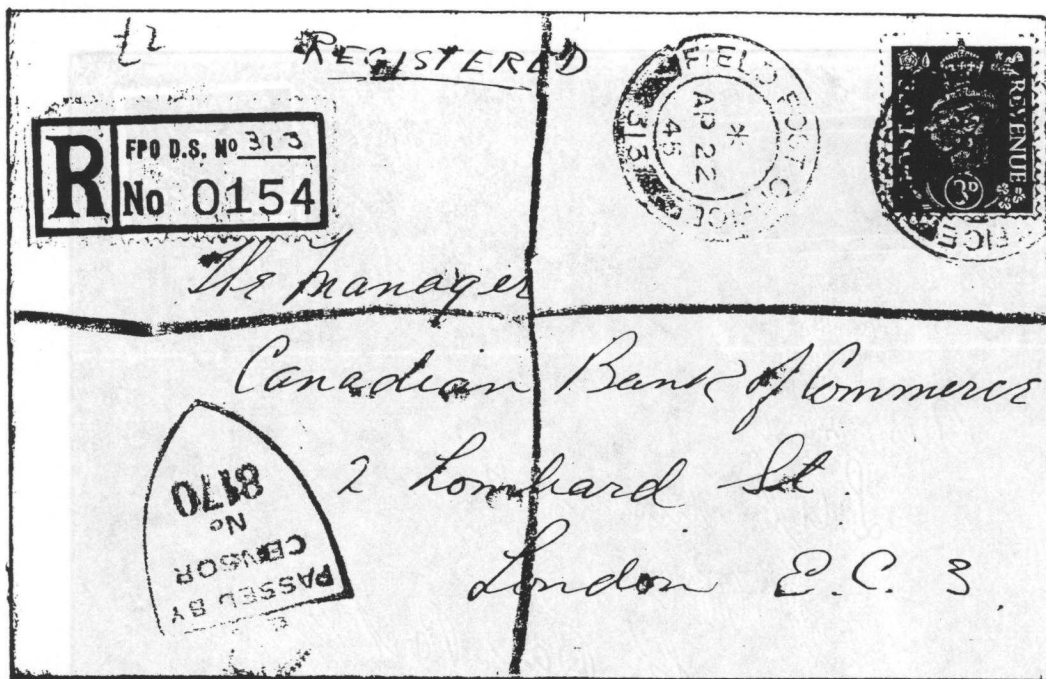 REGISTERED
R
FPO D.S. No 313
No 0154
FIELD POST OFFICE
313
AP 22
45
POSTAGE
REVENUE
3D
FICE
The Manager
Canadian Bank of Commerce
2 Lombard St.
London E.C. 3.
PASSED BY
CENSOR
No
8170